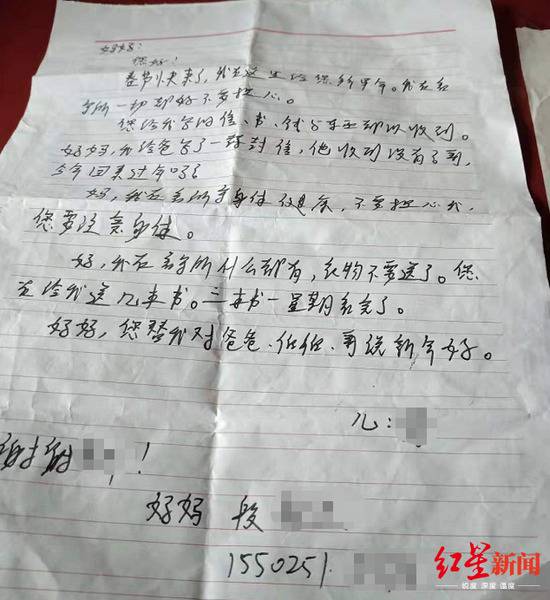 妈妈:
您好!
春节快来了,我在这里给您拜早年。我在看
守所一切都好不要担心。
您给我写的信、书、钱与东西都以收到。
妈妈,我给爸写了一封信,他收到没有了哥,
今年回来过年吗?
妈,我在看所守身体健康,不要担心我,
您要注意身体。
妈,我在看守所什么都有,衣物不要送了。您
在给我送几本书。三本书一星期看完了。
妈妈,您替我对爸爸、伯伯、哥说新年好。
儿:
谢谢 !
妈妈 段
1550251
红星新闻
锐度 深度 温度